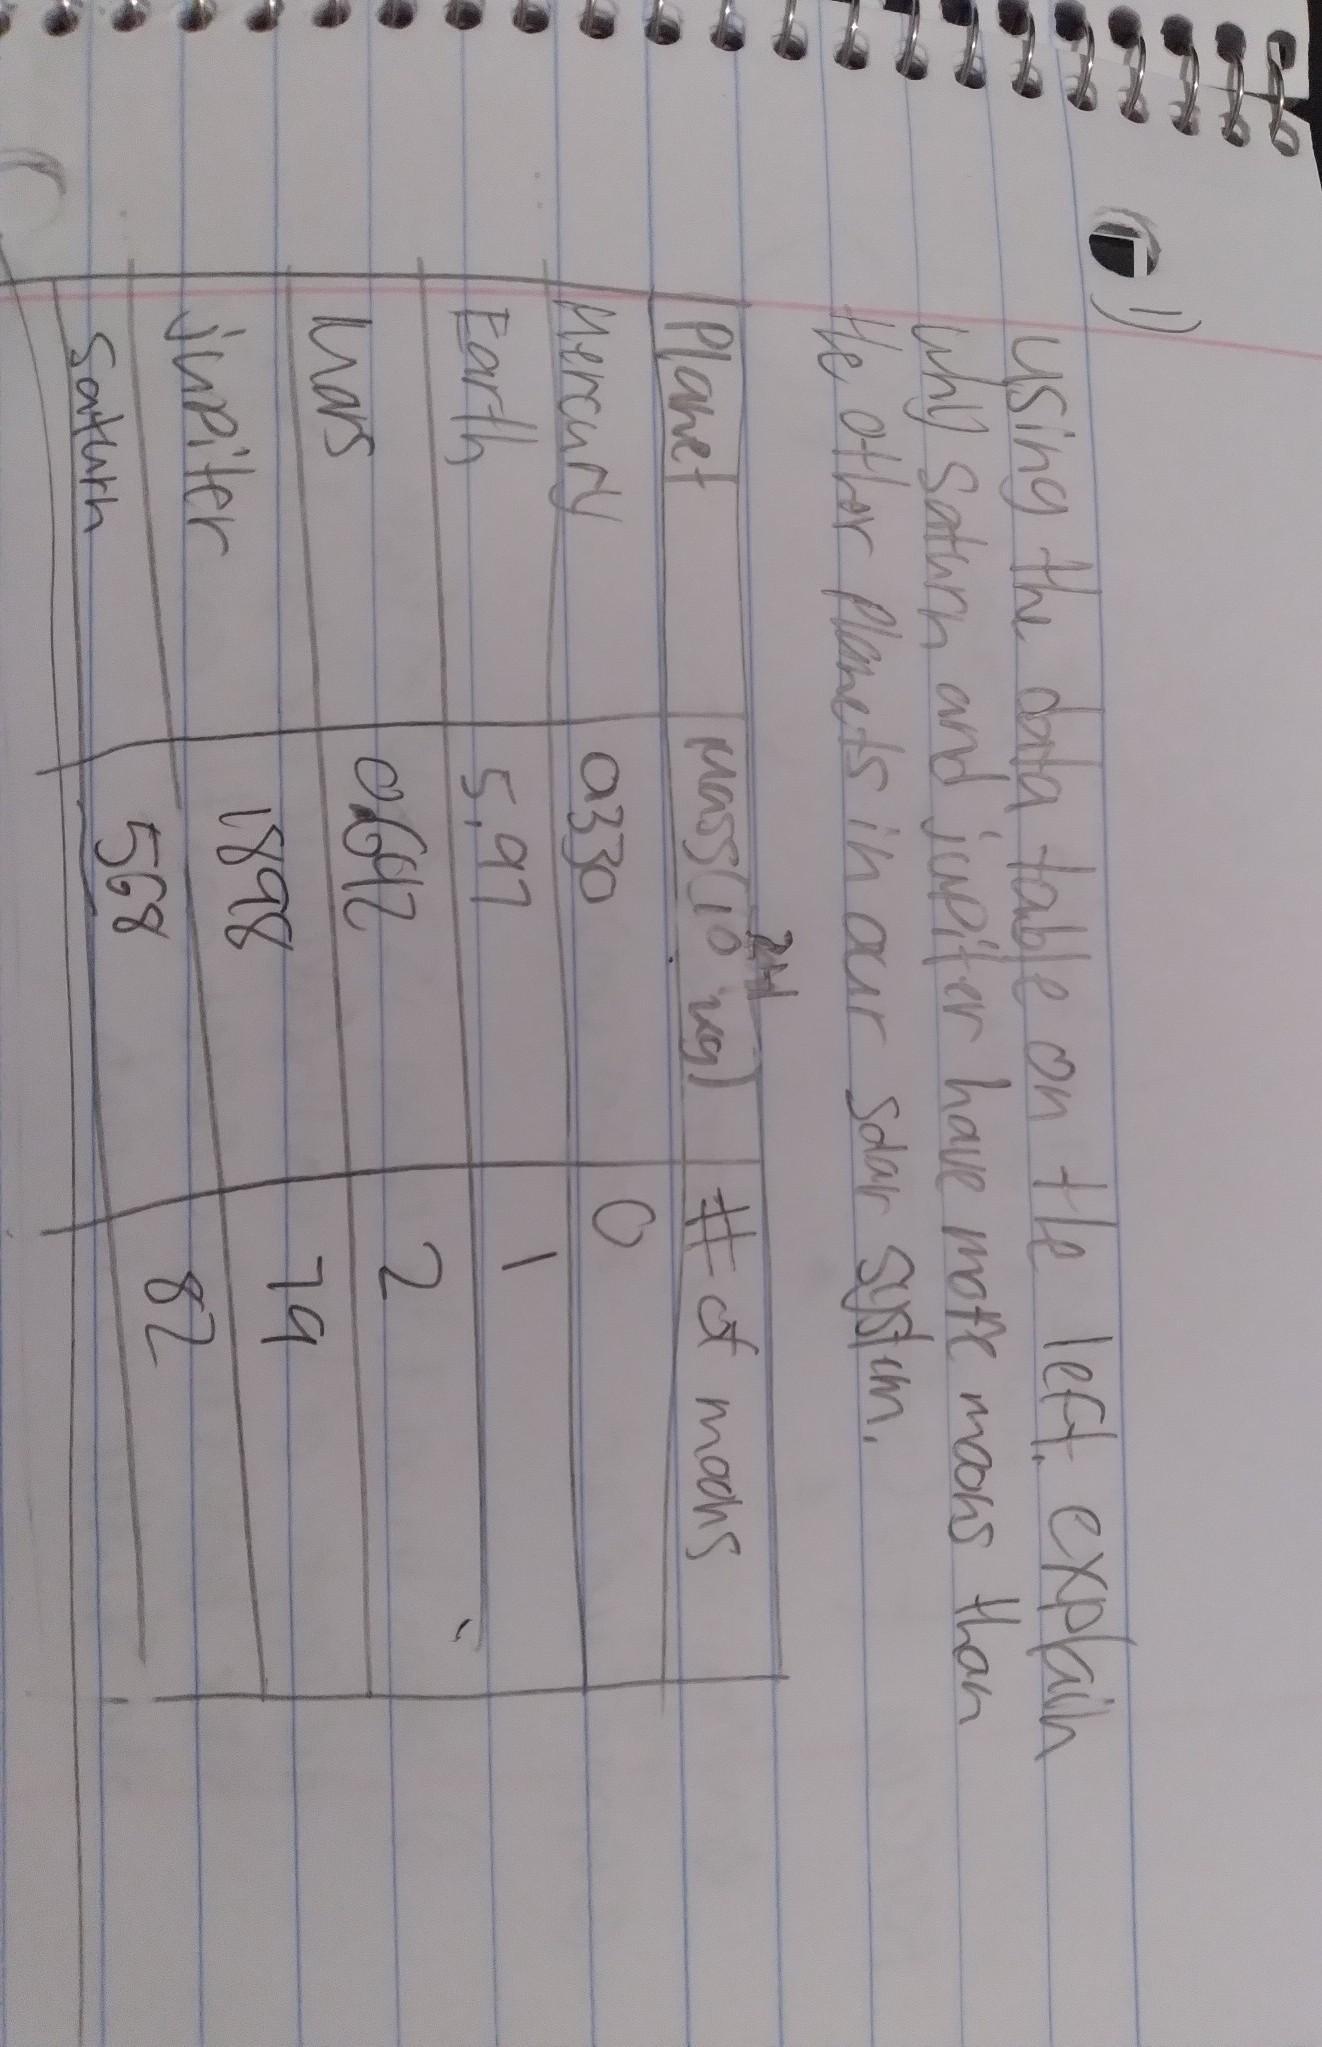 1)
using the data table on the left, explain
why saturn and jupiter have more moons than
the other planets in our solar system.
Planet mass(10^24 kg) # of moons
Mercury 0.330 0
Earth 5.97 1
Mars 0.642 2
jupiter 1898 79
saturn 568 82